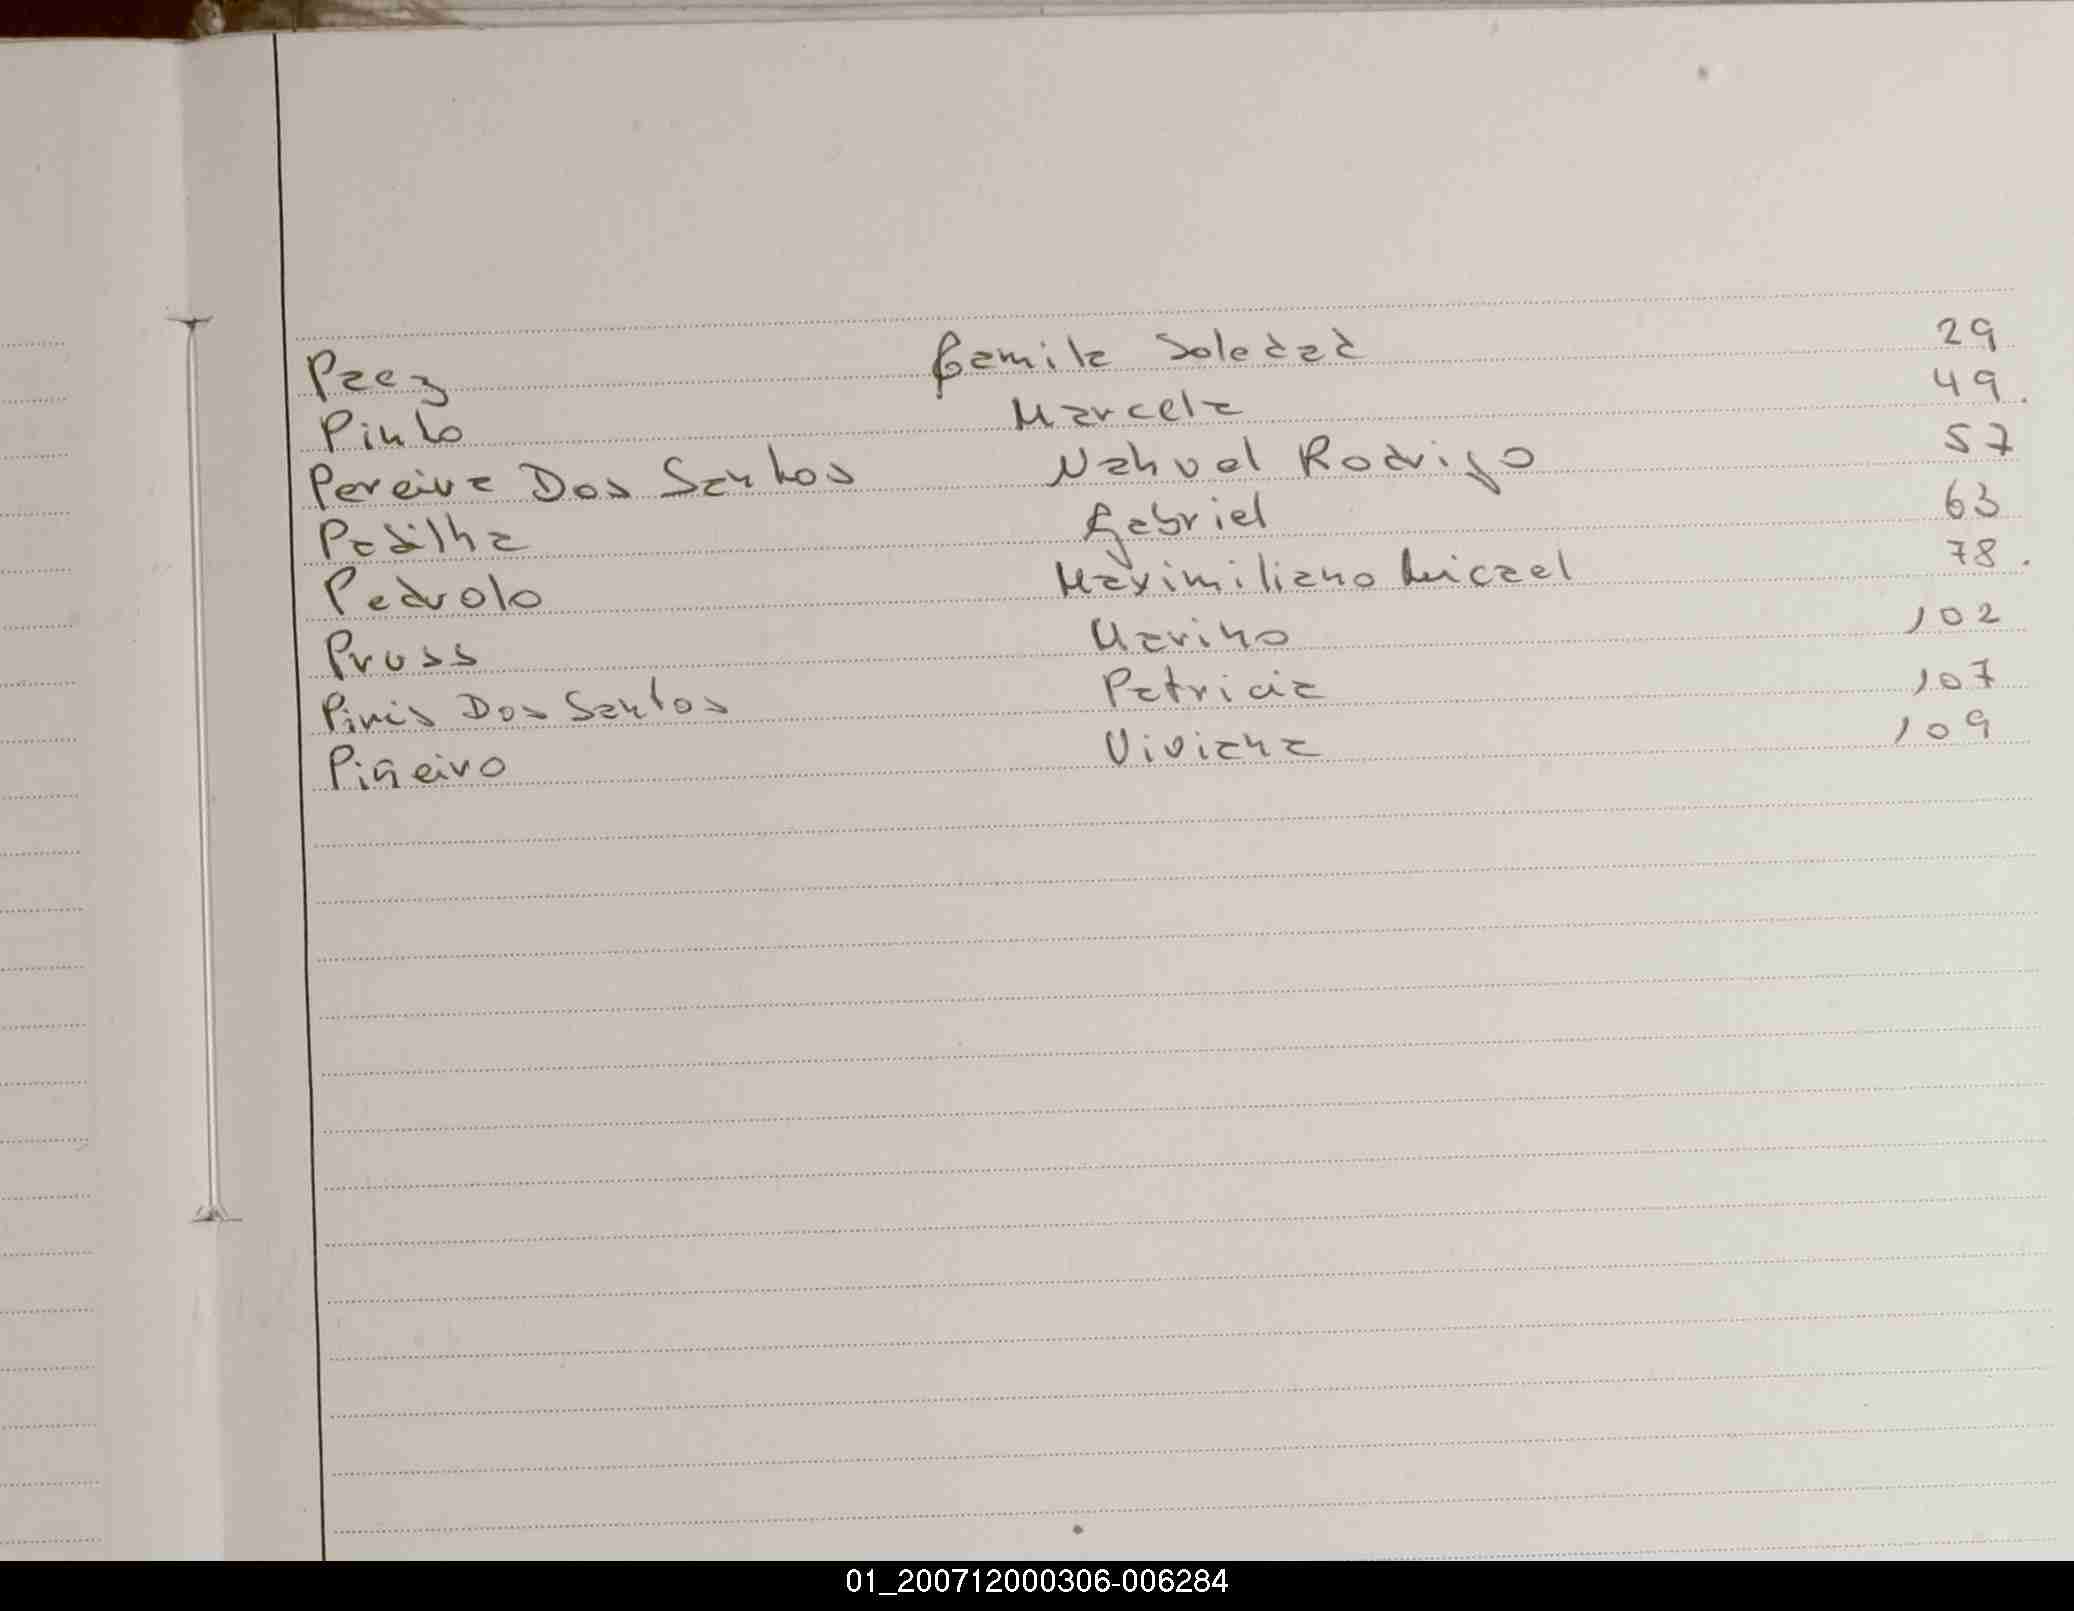 Paez Camila Soledad 29
Pinto Marcela 49.
Pereira Dos Santos Nahuel Rodrigo 57
Padilha Gabriel 63
Pedrolo Maximiliano Micael 78.
Pruss Marino 102
Piris Dos Santos Patricia 107
Piñeiro Viviana 109
01_200712000306-006284